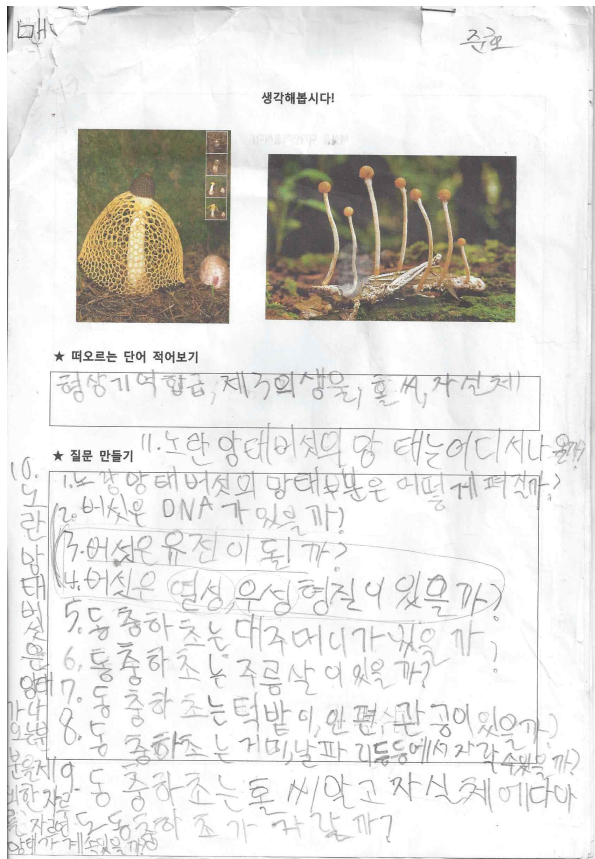 준호
생각해봅시다!
★ 떠오르는 단어 적어보기
형상기억합금, 제3의생물, 홀씨, 자실체
11. 노란 망태버섯의 망태는 어디서나 올까?
★ 질문 만들기
1. 노랑망태버섯의 망태부분은 어떻게 펴질까?
2. 버섯은 DNA가 있을까?
3. 버섯은 유전이 될까?
4. 버섯은 열성, 우성형질이 있을까?
5. 동충하초는 대주머니가 있을까?
6. 동충하초는 주름살이 있을까?
7. 동충하초는 턱받이, 인편, 관공이 있을까?
8. 동충하초는 거미, 날파리 등등에서 자랄 수 있을까?
9. 동충하초는 홀씨 말고 자실체에다가
동충하초가 자랄까?
10. 노란망태버섯은 망태가